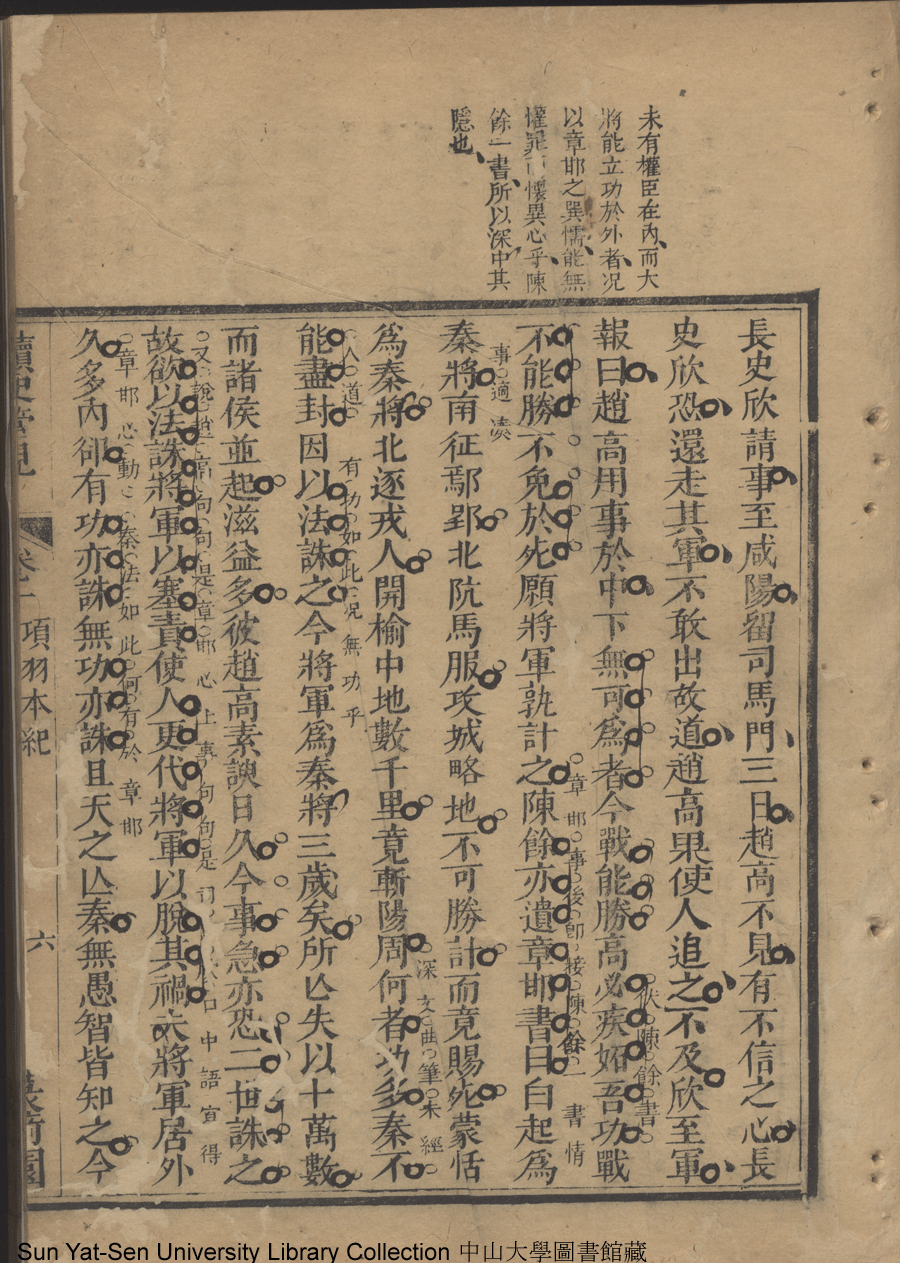 未有權臣在內而大
將能立功於外者况
以章邯之巽懦能無
懼罪而懷異心乎陳
餘一書所以深中其
隱也
長史欣請事至咸陽留司馬門三日趙高不見有不信之心長
史欣恐還走其軍不敢出故道趙高果使人追之不及欣至軍
報曰趙高用事於中下無可爲者今戰能勝高必疾妬吾功戰
伏陳餘書
不能勝不免於死願將軍孰計之陳餘亦遺章邯書曰白起爲
章邯事後卽接陳餘一書情
事適湊
秦將南征鄢郢北阬馬服攻城略地不可勝計而竟賜死蒙恬
爲秦將北逐戎人開榆中地數千里竟斬陽周何者功多秦不
深文曲筆未經
人道
能盡封因以法誅之今將軍爲秦將三歲矣所亾失以十萬數
有功如此况無功乎
而諸侯並起滋益多彼趙高素諛日久今事急亦恐二世誅之
故欲以法誅將軍以塞責使人更代將軍以脫其禍夫將軍居外
又說趙高句句是章邯心上事句句是
口中語宣得
久多內郤有功亦誅無功亦誅且天之亾秦無愚智皆知之今
章邯心動
秦法如此何有於章邯
讀史管見
卷一 項羽本紀
六
Sun Yat-Sen University Library Collection 中山大學圖書館藏